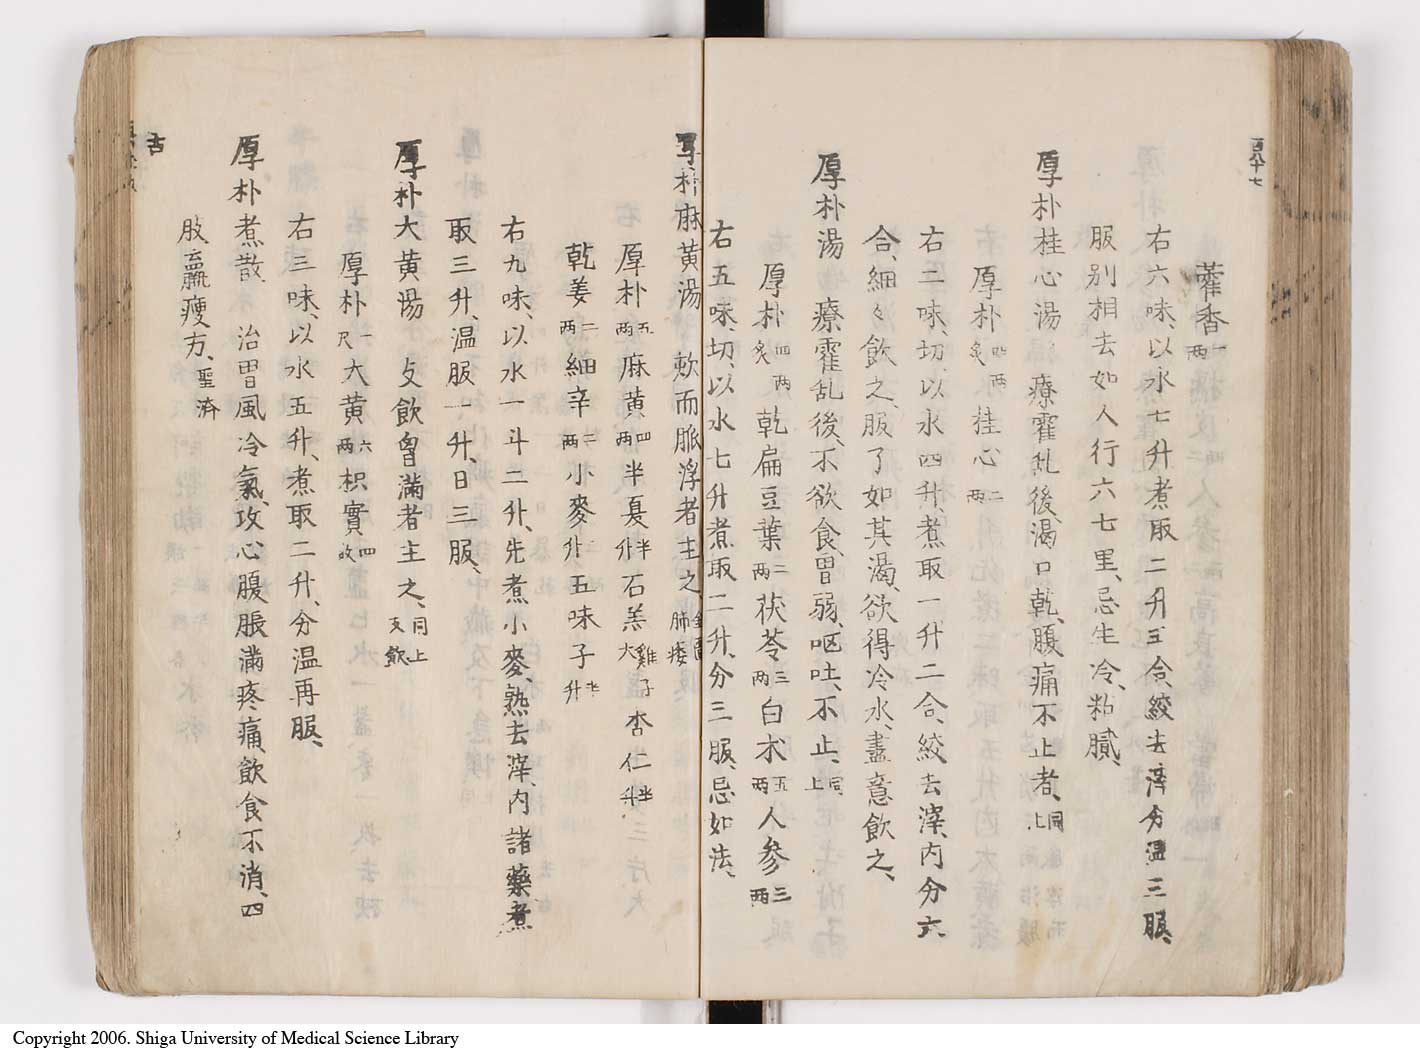 百八十七
藿香一両
右六味、以水七升煮取二升三合、絞去滓分温三服、
服別相去如人行六七里、忌生冷、粘膩、
厚朴桂心湯 療霍乱後、渇口乾、腹痛不止者、同上
厚朴四両炙 桂心二両
右二味、切、以水四升、煮取一升二合、絞去滓、内分六
合、細々飲之、服了如其渇、欲得冷水、盡意飲之、
厚朴湯 療霍乱後、不欲食、胃弱、呕吐、不止、同上
厚朴四両炙 乾扁豆葉二両 茯苓三両 白术五両 人参三両
右五味、切、以水七升煮取二升、分三服、忌如法、
厚朴麻黄湯 欬而脈浮者主之、金匱肺痿
厚朴五両 麻黄四両 半夏半升 石羔雞子大 杏仁半升
乾姜二両 細辛二両 小麥升 五味子半升
右九味、以水一斗二升、先煮小麥、熟去滓、内諸藥煮
取三升、温服一升、日三服、
厚朴大黄湯 攴飲胷滿者主之、同上支飲
厚朴一尺 大黄六両 枳實四枚
右三味、以水五升、煮取二升、分温再服、
厚朴煮散 治胃風冷氣、攻心腹脹滿疼痛、飲食不消、四
肢羸痩方、聖済
古
Copyright 2006. Shiga University of Medical Science Library